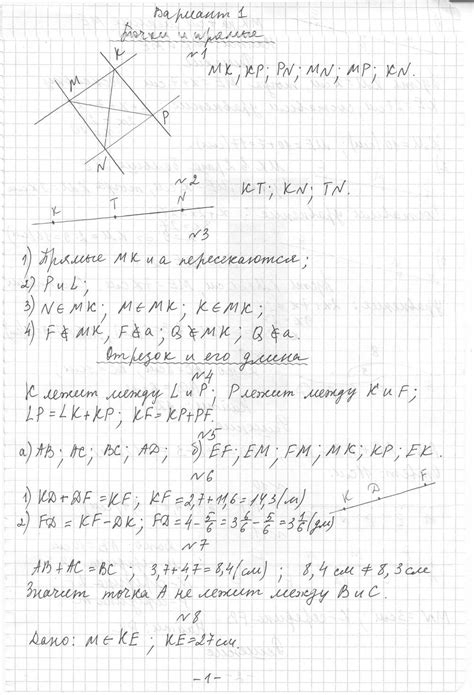 Вариант 1
Точки и прямые
№1
MK; KP; PN; MN; MP; KN.
K
M
P
N
№2
KT; KN; TN.
K T N
№3
1) Прямые MK и a пересекаются;
2) P и L;
3) N∈MK; M∈MK; K∈MK;
4) F∉MK, F∉a; Q∉MK; Q∉a.
Отрезок и его длина
№4
K лежит между L и P; P лежит между K и F;
LP=LK+KP; KF=KP+PF.
№5
а) AB; AC; BC; AD; б) EF; EM; FM; MK; KP; EK.
№6
1) KD+DF=KF; KF=2,7+11,6=14,3(м)
K D F
2) FD=KF-DK; FD=4-5/6=3 6/6-5/6=3 1/6(дм)
№7
AB+AC=BC; 3,7+4,7=8,4(см); 8,4 см≠8,3 см
Значит точка A не лежит между B и C.
№8
Дано: M∈KE; KE=27см.
-1-